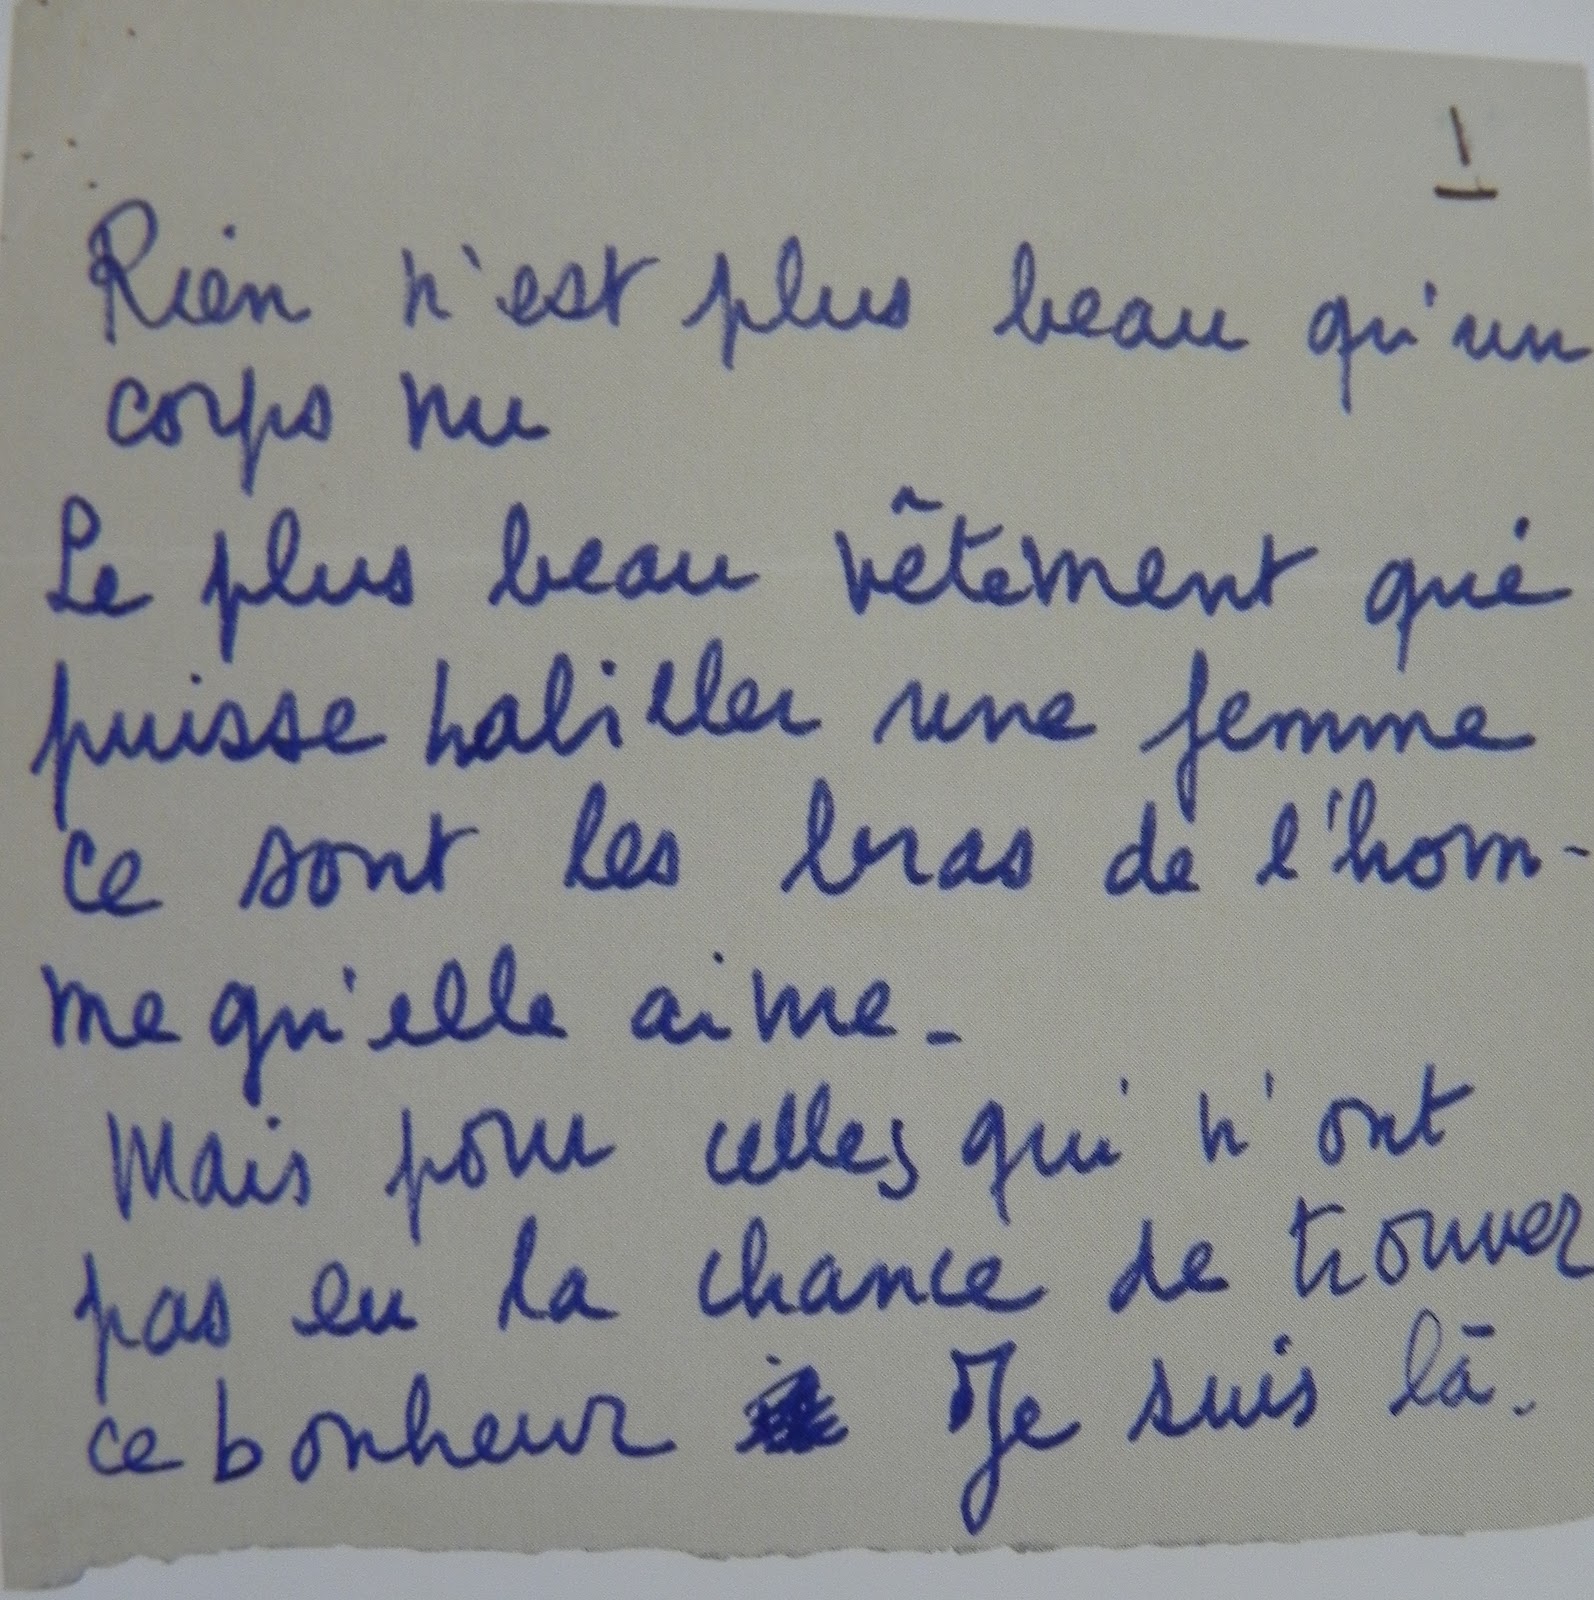 1
Rien n'est plus beau qu'un
corps nu
Le plus beau vêtement qui
puisse habiller une femme
ce sont les bras de l'hom-
me qu'elle aime -
Mais pour celles qui n'ont
pas eu la chance de trouver
ce bonheur Je suis là.